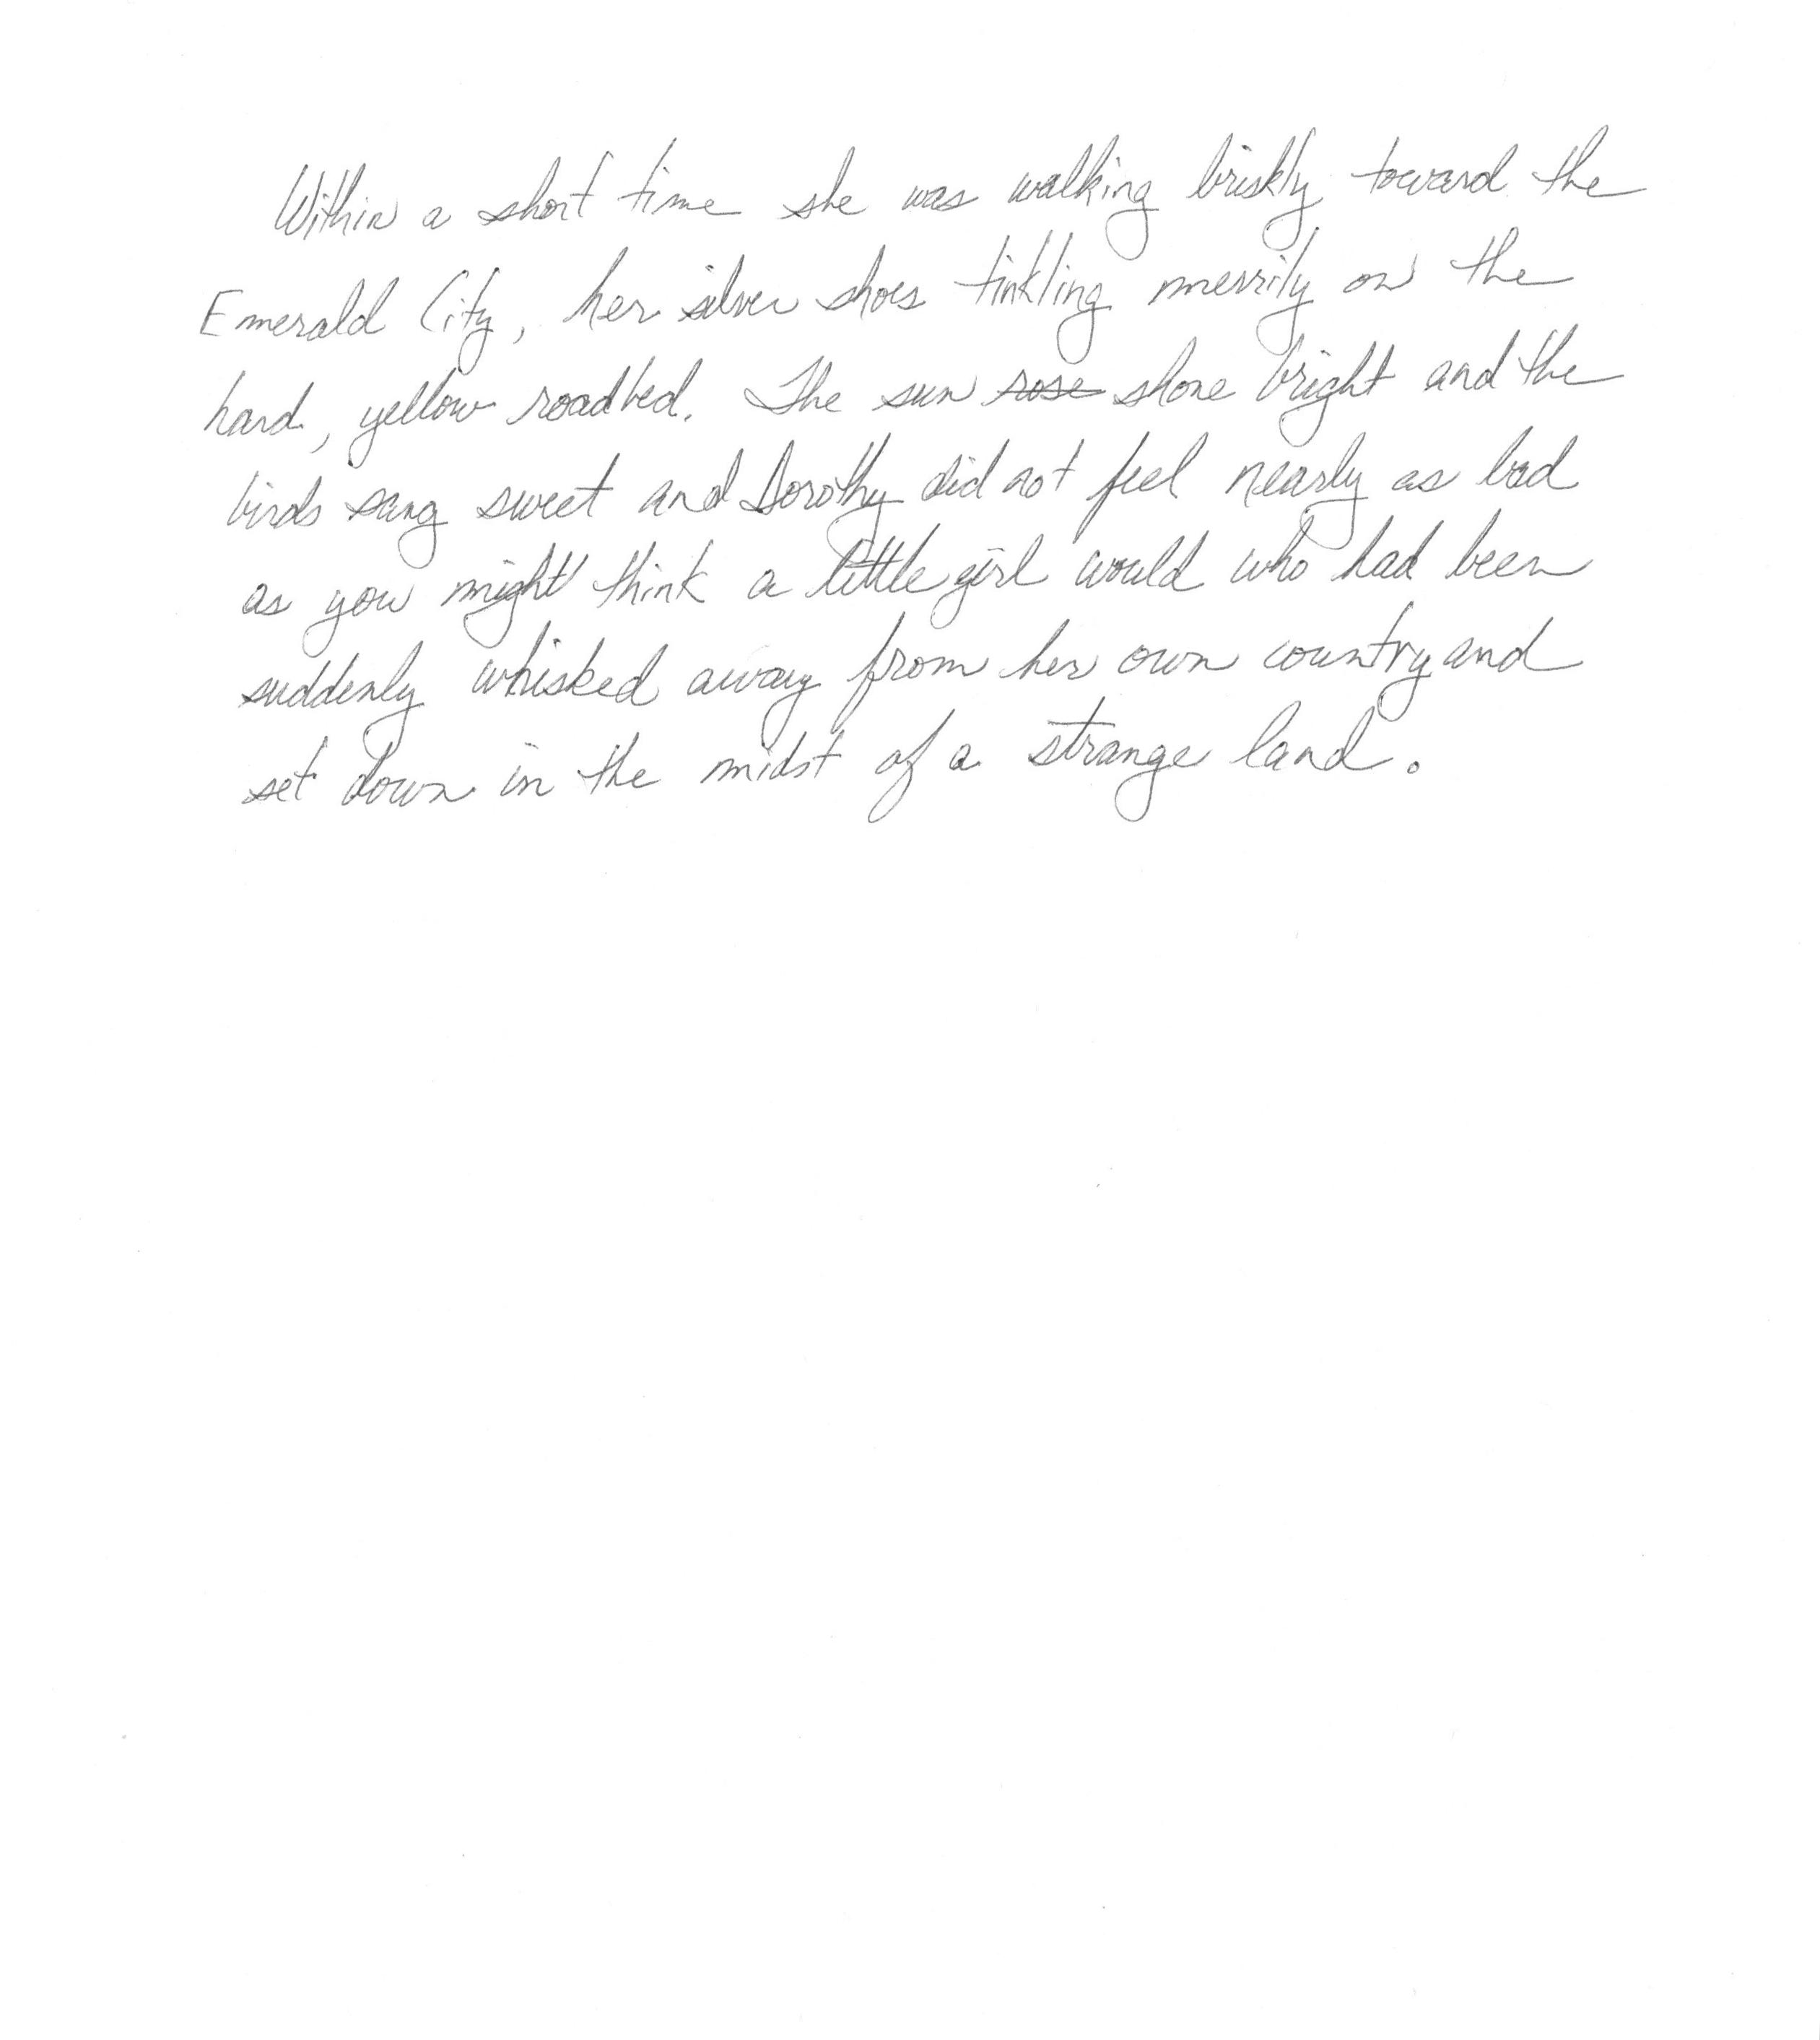 Within a short time she was walking briskly toward the
Emerald City, her silver shoes tinkling merrily on the
hard, yellow roadbed. The sun ~~rose~~ shone bright and the
birds sang sweet and Dorothy did not feel nearly as bad
as you might think a little girl would who had been
suddenly whisked away from her own country and
set down in the midst of a strange land.